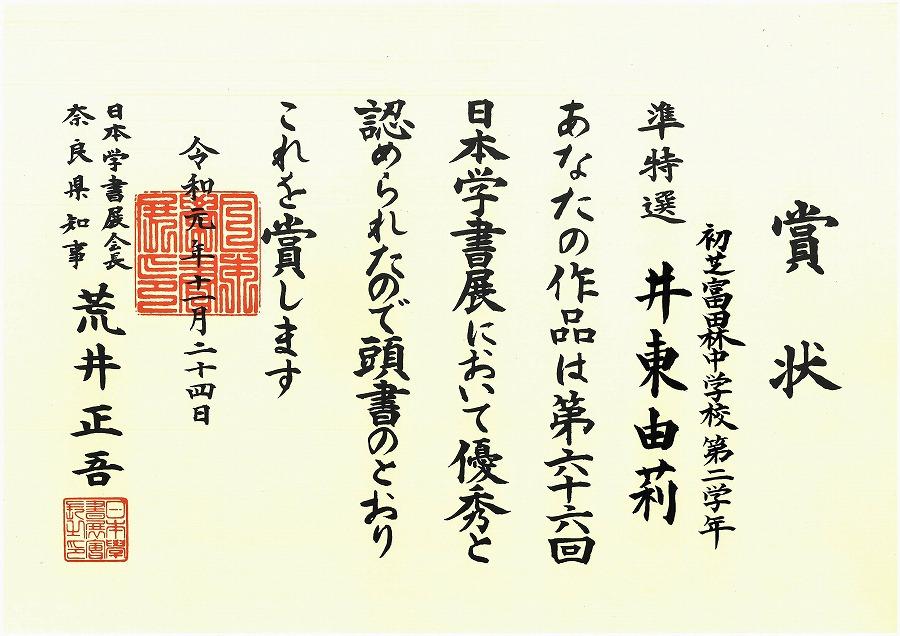 賞状
初芝富田林中学校第二学年
準特選　井東由莉
あなたの作品は第六十六回
日本学書展において優秀と
認められたので頭書のとおり
これを賞します
令和元年十一月二十四日
日本学書展会長
奈良県知事　荒井正吾